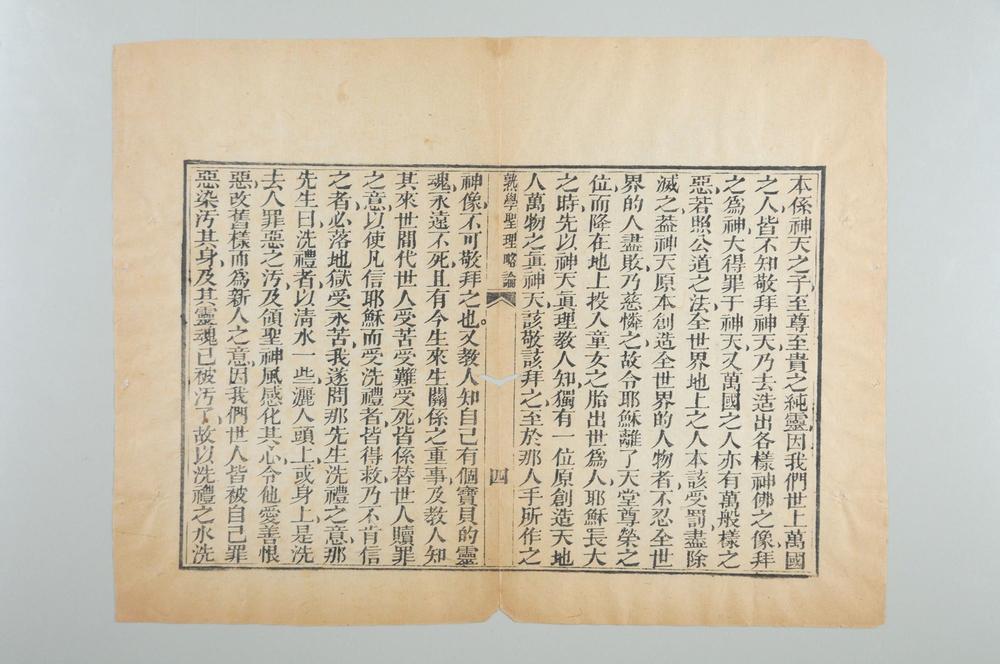 本係神天之子至尊至貴之純靈因我們世上萬國
之人皆不知敬拜神天乃去造出各樣神佛之像拜
之爲神大得罪于神天又萬國之人亦有萬般樣之
惡若照公道之法全世界地上之人本該受罰盡除
滅之葢神天原本創造全世界的人物者不忍全世
界的人盡敗乃慈憐之故令耶穌離了天堂尊榮之
位而降在地上投入童女之胎出世爲人耶穌長大
之時先以神天眞理教人知獨有一位原創造天地
人萬物之眞神天該敬該拜之至於那人手所作之
熟學聖理略論
四
神像不可敬拜之也。又教人知自己有個寶貝的靈
魂永遠不死且有今生來生關係之重事及教人知
其來世間代世人受苦受難受死皆係替世人贖罪
之意以使凡信耶穌而受洗禮者皆得救乃不肯信
之者必落地獄受永苦我遂問那先生洗禮之意那
先生曰洗禮者以清水一些灑人頭上或身上是洗
去人罪惡之汚及領聖神風感化其心令他愛善恨
惡改舊樣而爲新人之意因我們世人皆被自己罪
惡染汚其身及其靈魂已被汚了故以洗禮之水洗